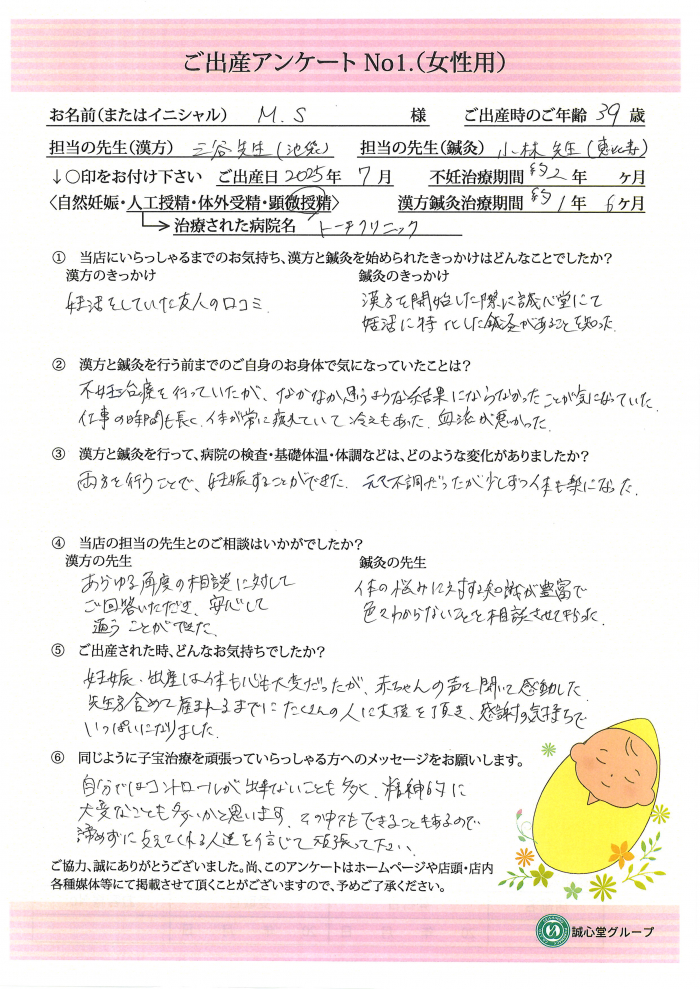 ご出産アンケート No1.(女性用)
お名前(またはイニシャル) M.S 様 ご出産時のご年齢 39 歳
担当の先生(漢方) 三谷先生(池袋) 担当の先生(鍼灸) 小林先生(恵比寿)
↓○印をお付け下さい ご出産日 2025年 7月 不妊治療期間 約2年 ヶ月
〈自然妊娠・人工授精・体外受精・顕微授精〉 漢方鍼灸治療期間 約1年 6ヶ月
治療された病院名 トーチクリニック
① 当店にいらっしゃるまでのお気持ち、漢方と鍼灸を始められたきっかけはどんなことでしたか?
漢方のきっかけ 鍼灸のきっかけ
妊活をしていた友人の口コミ.
漢方を開始した際に誠心堂にて
妊活に特化した鍼灸があることを知った.
② 漢方と鍼灸を行う前までのご自身のお身体で気になっていたことは?
不妊治療を行っていたが、なかなか思うような結果にならなかったことが気になっていた.
仕事の時間も長く、体が常に疲れていて冷えもあった. 血流が悪かった.
③ 漢方と鍼灸を行って、病院の検査・基礎体温・体調などは、どのような変化がありましたか?
両方を行うことで、妊娠することができた. 元々不調だったが少しずつ体も楽になった.
④ 当店の担当の先生とのご相談はいかがでしたか?
漢方の先生 鍼灸の先生
あらゆる角度の相談に対して
ご回答いただき、安心して
通うことができた.
体の悩みに対する知識が豊富で
色々わからないことを相談させてもらった.
⑤ ご出産された時、どんなお気持ちでしたか?
妊娠・出産は体も心も大変だったが、赤ちゃんの声を聞いて感動した.
先生含めて産まれるまでにたくさんの人に支援を頂き、感謝の気持ちで
いっぱいになりました.
⑥ 同じように子宝治療を頑張っていらっしゃる方へのメッセージをお願いします。
自分ではコントロールが出来ないことも多く、精神的に
大変なことも多いかと思います. その中でもできることもあるので
諦めずに支えてくれる人達を信じて頑張って下さい.
ご協力、誠にありがとうございました。尚、このアンケートはホームページや店頭・店内
各種媒体等にて掲載させて頂くことがございますので、予めご了承ください。
誠心堂グループ